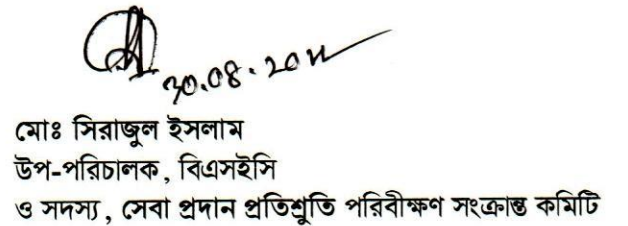 মোঃ সিরাজুল ইসলাম
উপ-পরিচালক, বিএসইসি
ও সদস্য, সেবা প্রদান প্রতিশ্রুতি পরিবীক্ষণ সংক্রান্ত কমিটি